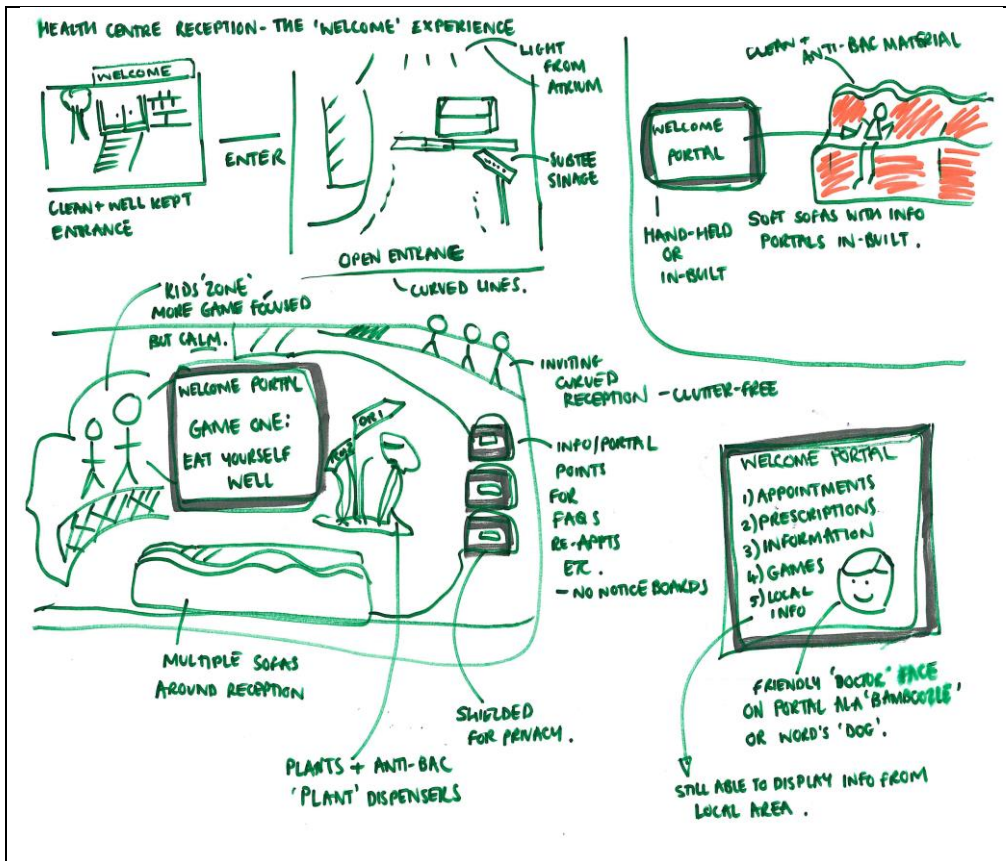 HEALTH CENTRE RECEPTION - THE 'WELCOME' EXPERIENCE
WELCOME
CLEAN + WELL KEPT
ENTRANCE
ENTER
LIGHT
FROM
ATRIUM
SUBTEE
SINAGE
OPEN ENTRANE
CURVED LINES.
CLEAN +
ANTI-BAC MATERIAL
WELCOME
PORTAL
HAND-HELD
OR
IN-BUILT
SOFT SOFAS WITH INFO
PORTALS IN-BUILT.
KIDS 'ZONE'
MORE GAME FOCUSED
BUT CALM.
WELCOME PORTAL
GAME ONE:
EAT YOURSELF
WELL
INVITING
CURVED
RECEPTION - CLUTTER-FREE
INFO/PORTAL
POINTS
FOR
FAQS
RE-APPTS
ETC.
- NO NOTICE BOARDS
MULTIPLE SOFAS
AROUND RECEPTION
PLANTS + ANTI-BAC
'PLANT' DISPENSERS
SHIELDED
FOR PRIVACY.
WELCOME PORTAL
1) APPOINTMENTS
2) PRESCRIPTIONS
3) INFORMATION
4) GAMES
5) LOCAL
INFO
FRIENDLY 'DOCTOR' FACE
ON PORTAL ALA 'BAMBOOZLE'
OR WORD'S 'DOG'.
STILL ABLE TO DISPLAY INFO FROM
LOCAL AREA.